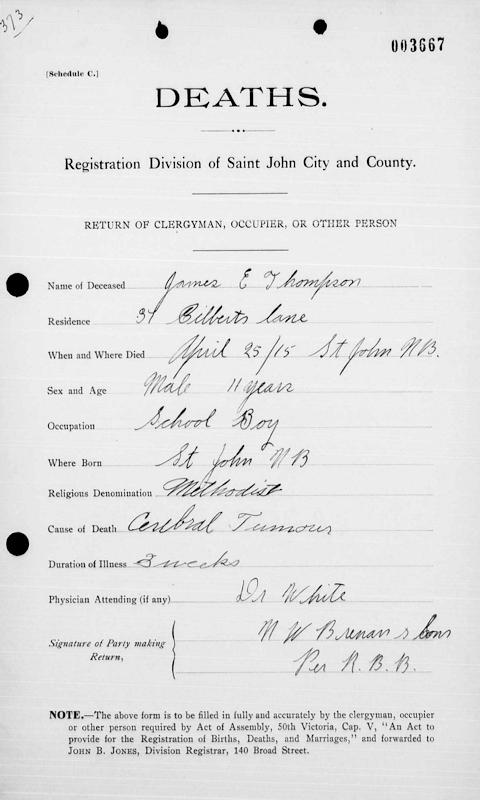 373
003667
[Schedule C.]
DEATHS.
Registration Division of Saint John City and County.
RETURN OF CLERGYMAN, OCCUPIER, OR OTHER PERSON
Name of Deceased James E Thompson
Residence 37 Gilberts lane
When and Where Died April 25/15 St John N.B.
Sex and Age Male 11 years
Occupation School Boy
Where Born St John N B
Religious Denomination Methodist
Cause of Death Cerebral Tumour
Duration of Illness 3 weeks
Physician Attending (if any) Dr White
Signature of Party making Return, N W Brenan & Sons
Per R. B. B.
NOTE.—The above form is to be filled in fully and accurately by the clergyman, occupier
or other person required by Act of Assembly, 50th Victoria, Cap. V, "An Act to
provide for the Registration of Births, Deaths, and Marriages," and forwarded to
JOHN B. JONES, Division Registrar, 140 Broad Street.